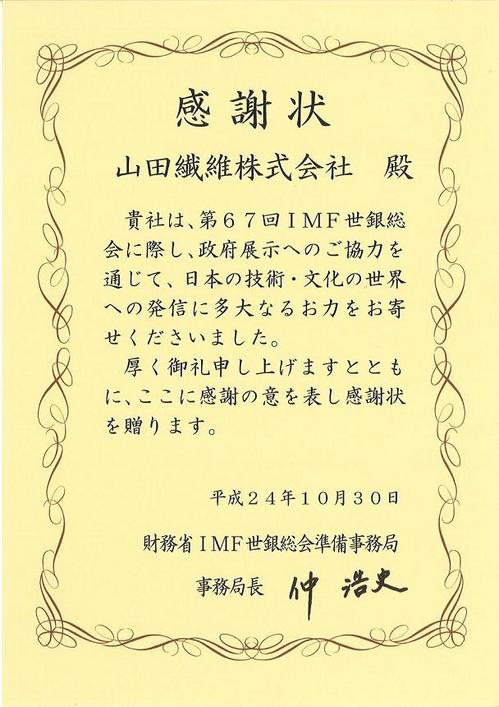 感謝状
山田繊維株式会社　殿
貴社は、第６７回ＩＭＦ世銀総
会に際し、政府展示へのご協力を
通じて、日本の技術・文化の世界
への発信に多大なるお力をお寄
せくださいました。
厚く御礼申し上げますととも
に、ここに感謝の意を表し感謝状
を贈ります。
平成２４年１０月３０日
財務省ＩＭＦ世銀総会準備事務局
事務局長　仲 浩史